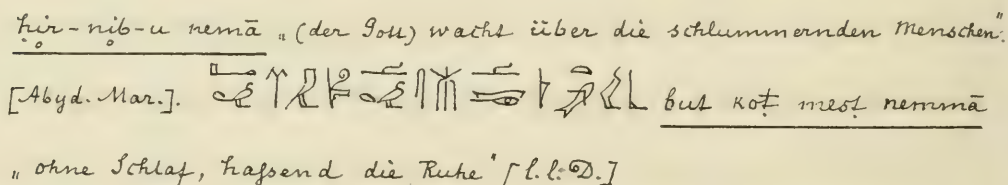 ḥir-nib-u nemā „(der Gott) wacht über die schlummernden Menschen".
[Abyd. Mar.]. but ḳoṭ mest nemmā
„ohne Schlaf, haſsend die Ruhe" [l. l. D.]